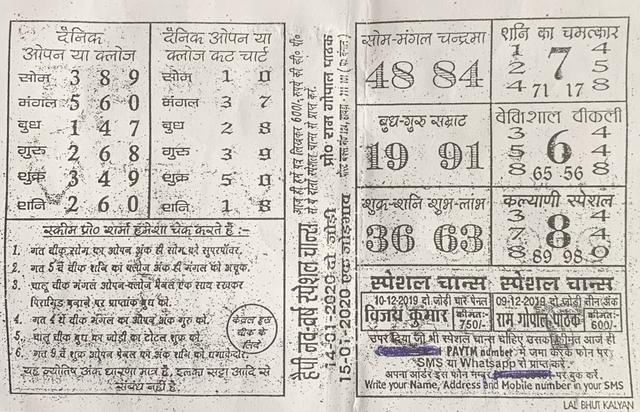 दैनिक
ओपन या क्लोज
सोम 3 8 9
मंगल 5 6 0
बुध 1 4 7
गुरु 2 6 8
शुक्र 3 4 9
शनि 2 6 0
दैनिक ओपन या
क्लोज कट चार्ट
सोम 1 0
मंगल 3 7
बुध 2 8
गुरु 3 9
शुक्र 5 0
शनि 1 8
स्कीम प्रो० शर्मा हमेशा चैक करते है :-
1. गत वीक सोम का ओपन अंक ही सोम को सुपरपॉवर.
2. गत 5 वें वीक शनि का क्लोज अंक ही मंगल को अचूक.
3. चालू वीक मंगल ओपन-क्लोज पैनल एक साथ रखकर
पिरामिड बनाने पर प्राप्तांक बुध को.
4. गत 4 थे वीक मंगल का ओपन अंक गुरु को.
5. चालू वीक बुध पर जोड़ी का टोटल शुक्र को.
6. गत 9 वें शुक्र ओपन पैनल का अंक शनि को धमाकेदार.
केवल इस
वीक के
लिये
यह ज्योतिष अंक धारणा मात्र है, इनका सट्टा आदि से
संबंध नहीं है.
हैप्पी नव-वर्ष स्पेशल चान्स
14-01-2020 दो जोड़ी
15-01-2020 एक जोड़ी
प्रो० राम गोपाल पाठक
सोम-मंगल चन्द्रमा
48 84
बुध-गुरु सम्राट
19 91
शुक्र-शनि शुभ-लाभ
36 63
शनि का चमत्कार
1 4
2 7 5
4 71 17 8
वेविशाल वीकली
3 4
5 6 6
8 65 56 8
कल्याणी स्पेशल
3 4
7 8 4
8 89 98 9
स्पेशल चान्स
10-12-2019 दो जोड़ी चार पैनल
विजय कुमार कीमत:- 750/-
स्पेशल चान्स
09-12-2019 दो जोड़ी तीन अंक
राम गोपाल पाठक कीमत:- 600/-
उपर दिया जो भी स्पेशल चान्स चाहिए उसकी कीमत आज ही
PAYTM number में जमा करके फोन पर
SMS या Whatsapp से प्राप्त करें.
अपना आर्डर इस फोन नम्बर पर बुक करें.
Write your Name, Address and Mobile number in your SMS
LAL BHUT KALYAN